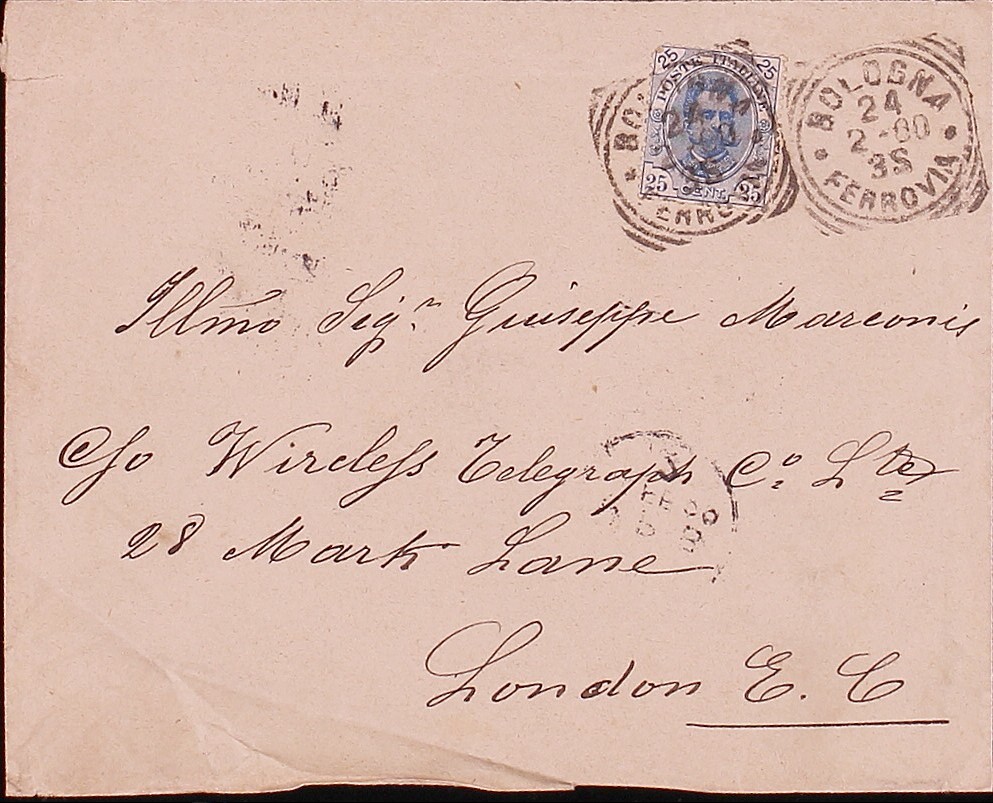 25 25
POSTE ITALIANE
25 CENT. 25
BOLOGNA
24
2-00
3S
FERROVIA
Illmo Sigr. Giuseppe Marconis
C/o Wireless Telegraph Co. Lte
28 Mark Lane
London E. C